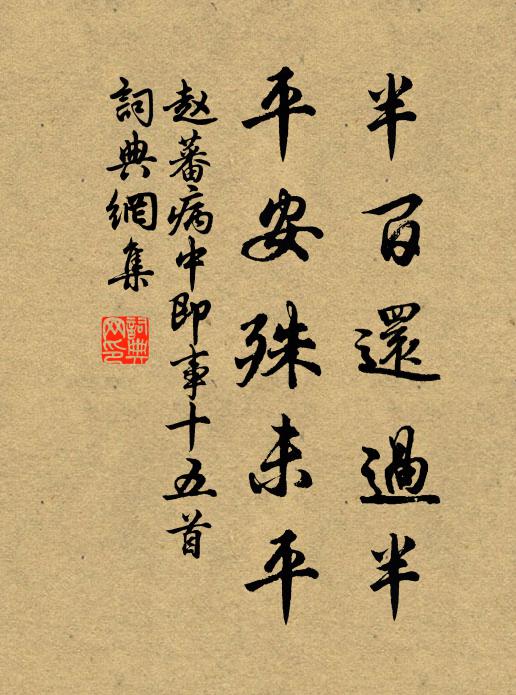 半百還過半
平安殊未平
赵蕃病中即事十五首
詞典網集
詞典網印